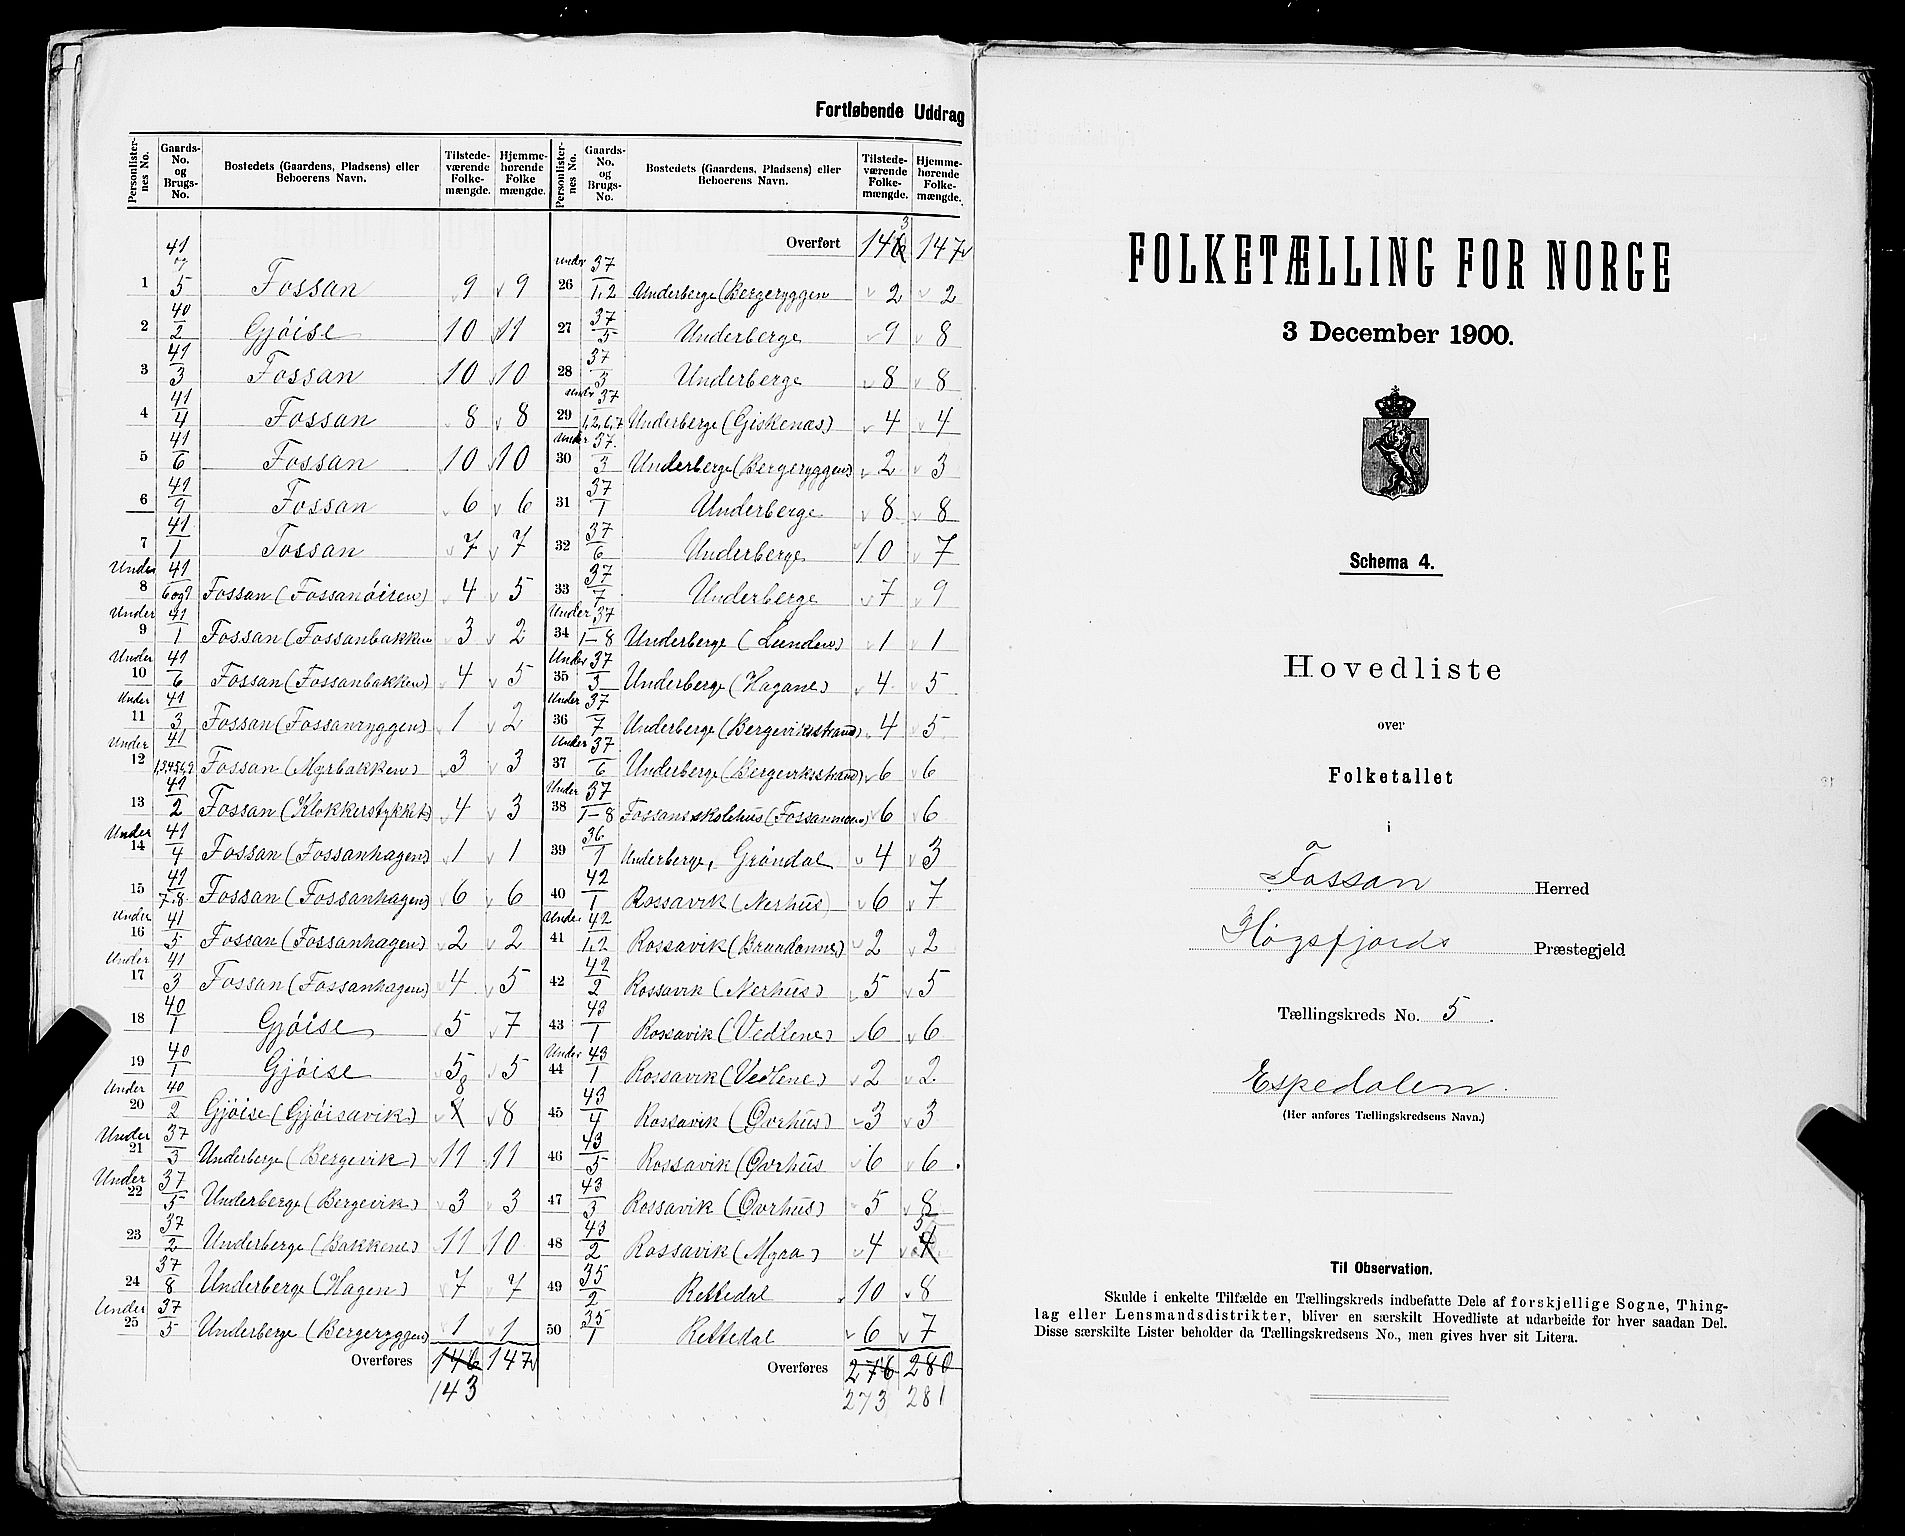 Fortløbende Uddrag
Personlisternes No. | Gaards-No. og Brugs-No. | Bostedets (Gaardens, Pladsens) eller Beboerens Navn. | Tilstedeværende Folkemængde. | Hjemmehørende Folkemængde.
1 | 41 og 5 | Fossan | 9 | 9
2 | 40/2 | Gjöise | 10 | 11
3 | 41/3 | Fossan | 10 | 10
4 | 41/4 | Fossan | 8 | 8
5 | 41/6 | Fossan | 10 | 10
6 | 41/9 | Fossan | 6 | 6
7 | 41/1 | Fossan | 7 | 7
Under 8 | 41/6og9 | Fossan (Fossanöiren) | 4 | 5
Under 9 | 41/1 | Fossan (Fossanbakken | 3 | 2
Under 10 | 41/6 | Fossan (Fossanbakken) | 4 | 5
Under 11 | 41/3 | Fossan (Fossanryggen) | 1 | 2
Under 12 | 41/1,3,4,5,6,9 | Fossan (Myrbakken) | 3 | 3
13 | 41/2 | Fossan (Klokkerstykket) | 4 | 3
Under 14 | 41/4 | Fossan (Fossanhagen) | 1 | 1
15 | 41/7.8. | Fossan (Fossanhagen) | 6 | 6
Under 16 | 41/5 | Fossan (Fossanhagen) | 2 | 2
Under 17 | 41/3 | Fossan (Fossanhagen) | 4 | 5
18 | 40/1 | Gjöise | 5 | 7
19 | 40/1 | Gjöise | 5 | 5
Under 20 | 40/2 | Gjöise (Gjöisavik) | 8 | 8
Under 21 | 37/3 | Underberge (Bergevik) | 11 | 11
Under 22 | 37/5 | Underberge (Bergevik) | 3 | 3
23 | 37/2 | Underberge (Bakkene) | 11 | 10
24 | 37/8 | Underberge (Hagen) | 7 | 7
Under 25 | 37/5 | Underberge (Bergeryggen) | 1 | 1
Overføres 146 147
143
Personlisternes No. | Gaards-No. og Brugs-No. | Bostedets (Gaardens, Pladsens) eller Beboerens Navn. | Tilstedeværende Folkemængde. | Hjemmehørende Folkemængde.
Overført 143 147
under 26 | 37/1.2 | Underberge (Bergeryggen | 2 | 2
27 | 37/5 | Underberge | 9 | 8
28 | 37/3 | Underberge | 8 | 8
Under 29 | 37/1,2,6,7 | Underberge (Giskenæs) | 4 | 4
Under 30 | 37/3 | Underberge (Bergeryggen) | 2 | 3
31 | 37/1 | Underberge | 8 | 8
32 | 37/6 | Underberge | 10 | 7
33 | 37/7 | Underberge | 7 | 9
Under 34 | 37/1-8 | Underberge (Lunden) | 1 | 1
Under 35 | 37/3 | Underberge (Hagane) | 4 | 5
Under 36 | 37/7 | Underberge (Bergeviksstrand) | 4 | 5
Under 37 | 37/6 | Underberge (Bergeviksstrand) | 6 | 6
Under 38 | 37/1-8 | Fossansskolehus (Fossanmoen) | 6 | 6
39 | 36/1 | Underberge, Gröndal | 4 | 3
40 | 42/1 | Rossavik (Nerhus) | 6 | 7
Under 41 | 42/1,2 | Rossavik (Braadanne) | 2 | 2
42 | 42/2 | Rossavik (Nerhus) | 5 | 5
43 | 43/1 | Rossavik (Vedlene) | 6 | 6
Under 44 | 43/1 | Rossavik (Vedlene) | 2 | 2
45 | 43/4 | Rossavik (Øvrhus) | 3 | 3
46 | 43/5 | Rossavik (Øvrhus | 6 | 6
47 | 43/3 | Rossavik (Øvrhus) | 5 | 8
48 | 43/2 | Rossavik (Myra) | 4 | 5
49 | 35/2 | Rettedal | 10 | 8
50 | 35/1 | Rettedal | 6 | 7
Overføres 276 280
273 281
FOLKETÆLLING FOR NORGE
3 December 1900.
Schema 4.
Hovedliste
over
Folketallet
i
Fossan Herred
Høgsfjords Præstegjeld
Tællingskreds No. 5.
Espedalen.
(Her anføres Tællingskredsens Navn.)
Til Observation.
Skulde i enkelte Tilfælde en Tællingskreds indbefatte Dele af forskjellige Sogne, Thing-
lag eller Lensmandsdistrikter, bliver en særskilt Hovedliste at udarbeide for hver saadan Del.
Disse særskilte Lister beholder da Tællingskredsens No., men gives hver sit Litera.